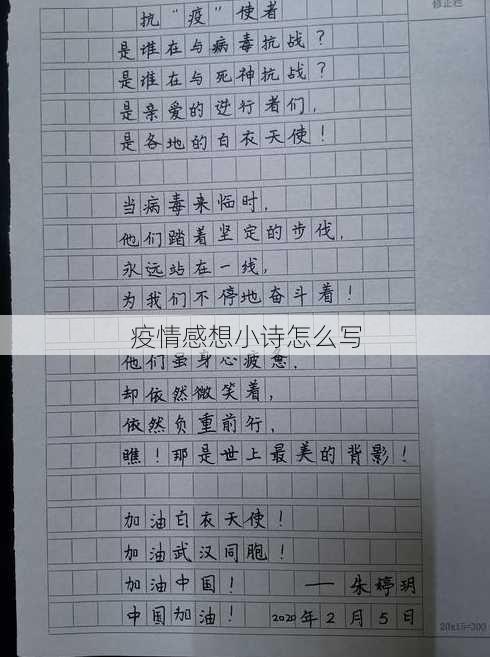 修正栏
抗“疫”使者
是谁在与病毒抗战？
是谁在与死神抗战？
是亲爱的逆行者们，
是各地的白衣天使！
当病毒来临时，
他们踏着坚定的步伐，
永远站在一线，
为我们不停地奋斗着！
疫情感想小诗怎么写
他们虽身心疲惫，
却依然微笑着，
依然负重前行，
瞧！那是世上最美的背影！
加油白衣天使！
加油武汉同胞！
加油中国！ —— 朱婷玥
中国加油！ 2020年2月5日
20x15=300